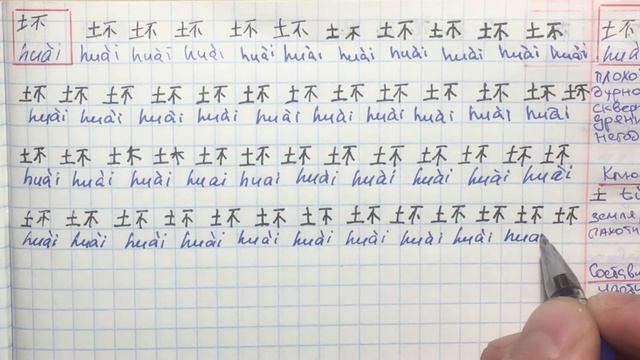 坏 坏 坏 坏 坏 坏 坏 坏 坏 坏 坏
huài huài huài huài huài huài huài huài huài huài huài
坏 坏 坏 坏 坏 坏 坏 坏 坏 坏 坏 坏 坏
huài huài huài huài huài huài huài huài huài huài
坏 坏 坏 坏 坏 坏 坏 坏 坏 坏 坏 坏 坏
huài huài huài huai huai huài huài huài huài huài
坏 坏 坏 坏 坏 坏 坏 坏 坏 坏 坏 坏 坏
huài huài huài huài huài huài huài huài huài hua
坏
huà
плохо
дурно
сквер
дрян
негод
Клю
土
земля
Состави